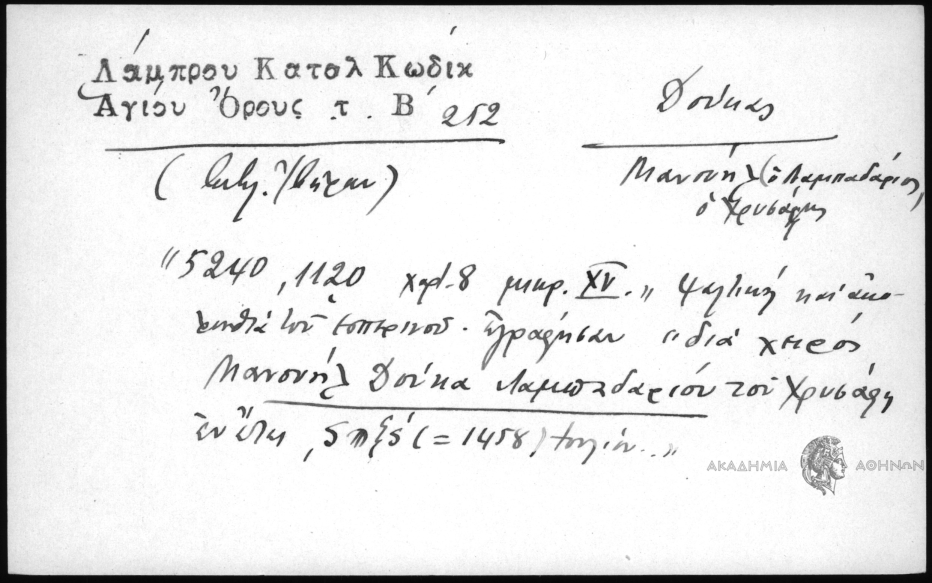 Λάμπρου Κατολ Κωδικ
Αγίου Όρους τ. Β΄ 252
Δούκας
Μανουήλ (ὁ Λαμπαδάριος,
ὁ Χρυσάφης
"5240, 1120 χφ. 8 μικρ. XV.„ Ψαλτική καί ἀκο-
λουθία τοῦ ἑσπερινοῦ. ἐγράφησαν "διά χειρός
Μανουήλ Δούκα Λαμπαδαρίου τοῦ Χρυσάφη
ἐν ἔτει ,ςπξς (= 1458) Ἰουλίου..„
ΑΚΑΔΗΜΙΑ ΑΘΗΝΩΝ